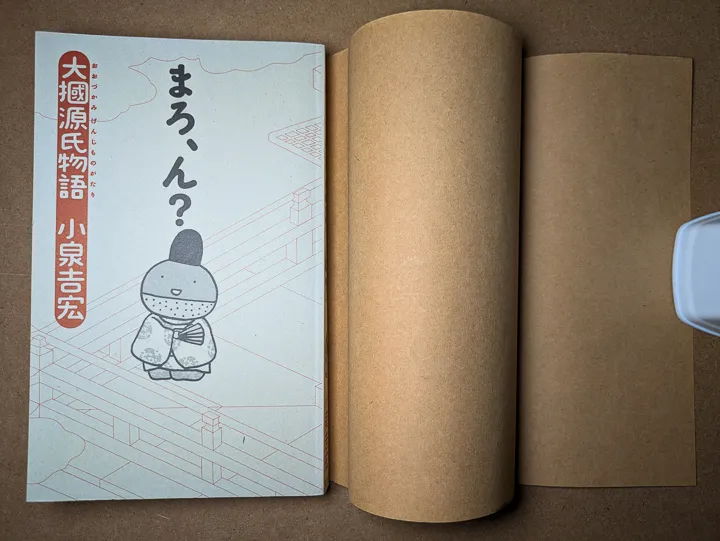 まろ、ん?
おおづかみ げんじものがたり
大摑源氏物語 小泉吉宏